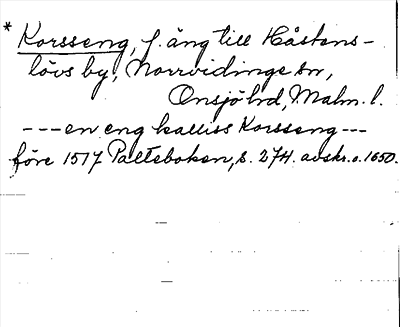 * Korsseng, f. äng till Håstens-
lövs by, Norrvidinge sn,
Onsjö hd, Malm. l.
---en eng kalliss Korsseng---
före 1517 Palteboken, s. 274. avskr. o. 1650.